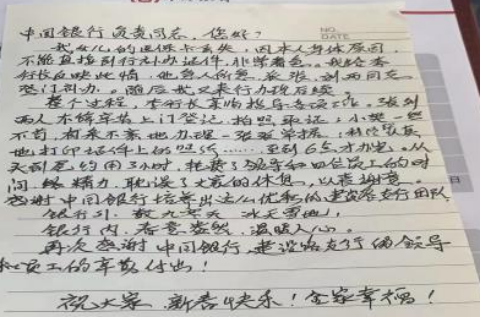 中国银行负责同志，您好！
我女儿的医保卡丢失，因本人身体原因，
不能直接到行办证件，非常着急。我给李
行长反映此情，他急人所急，派张、刘两同志
登门到办。随后我又来行办理后续。
整个过程，李行长亲临指导各项工作。张刘
两人不辞辛苦上门登记，拍照取证；小樊一丝
不苟，有条不紊地办理一张张单据；
地打印证件上的照片……至到6点才办完。从
天到黑约用3小时，耗费了领导和四位员上的时
间、精力，耽误了大家的休息，以表谢意。
感谢中国银行培养出这么优秀的建设路支行团队
银行外：数九寒天 冰天雪地；
银行内：春意盎然 温暖人心。
再次感谢中国银行建设路支行的领导
和员工的辛勤付出！
祝大家 新春快乐！全家幸福！
NO.
DATE